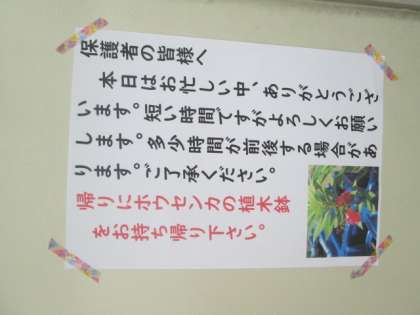 保護者の皆様へ
本日はお忙しい中、ありがとうござ
います。短い時間ですがよろしくお願い
します。多少時間が前後する場合があ
ります。ご了承ください。
帰りにホウセンカの植木鉢
をお持ち帰り下さい。